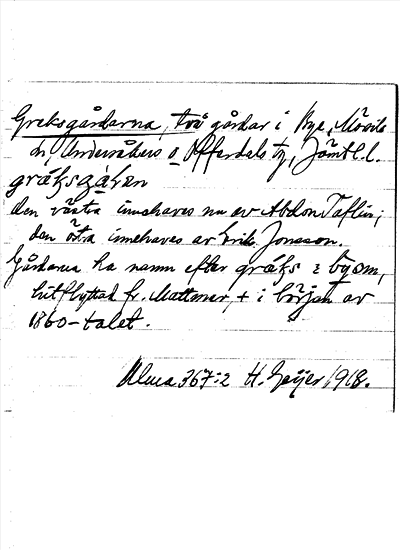 Greksgårdarna, två gårdar i Bye, Mörsils
sn, Undersåkers o Offerdals tg, Jämtl. l.
gräksgáḷen
den västra innehaves nu av Abdon Taflin;
den östra innehaves av Erik Jonsson.
Gårdarna ha namn efter gräks i byom,
hitflyttad fr. Mattmar, + i början av
1860-talet.
Ulma 367:2 H. Geijer 1918.